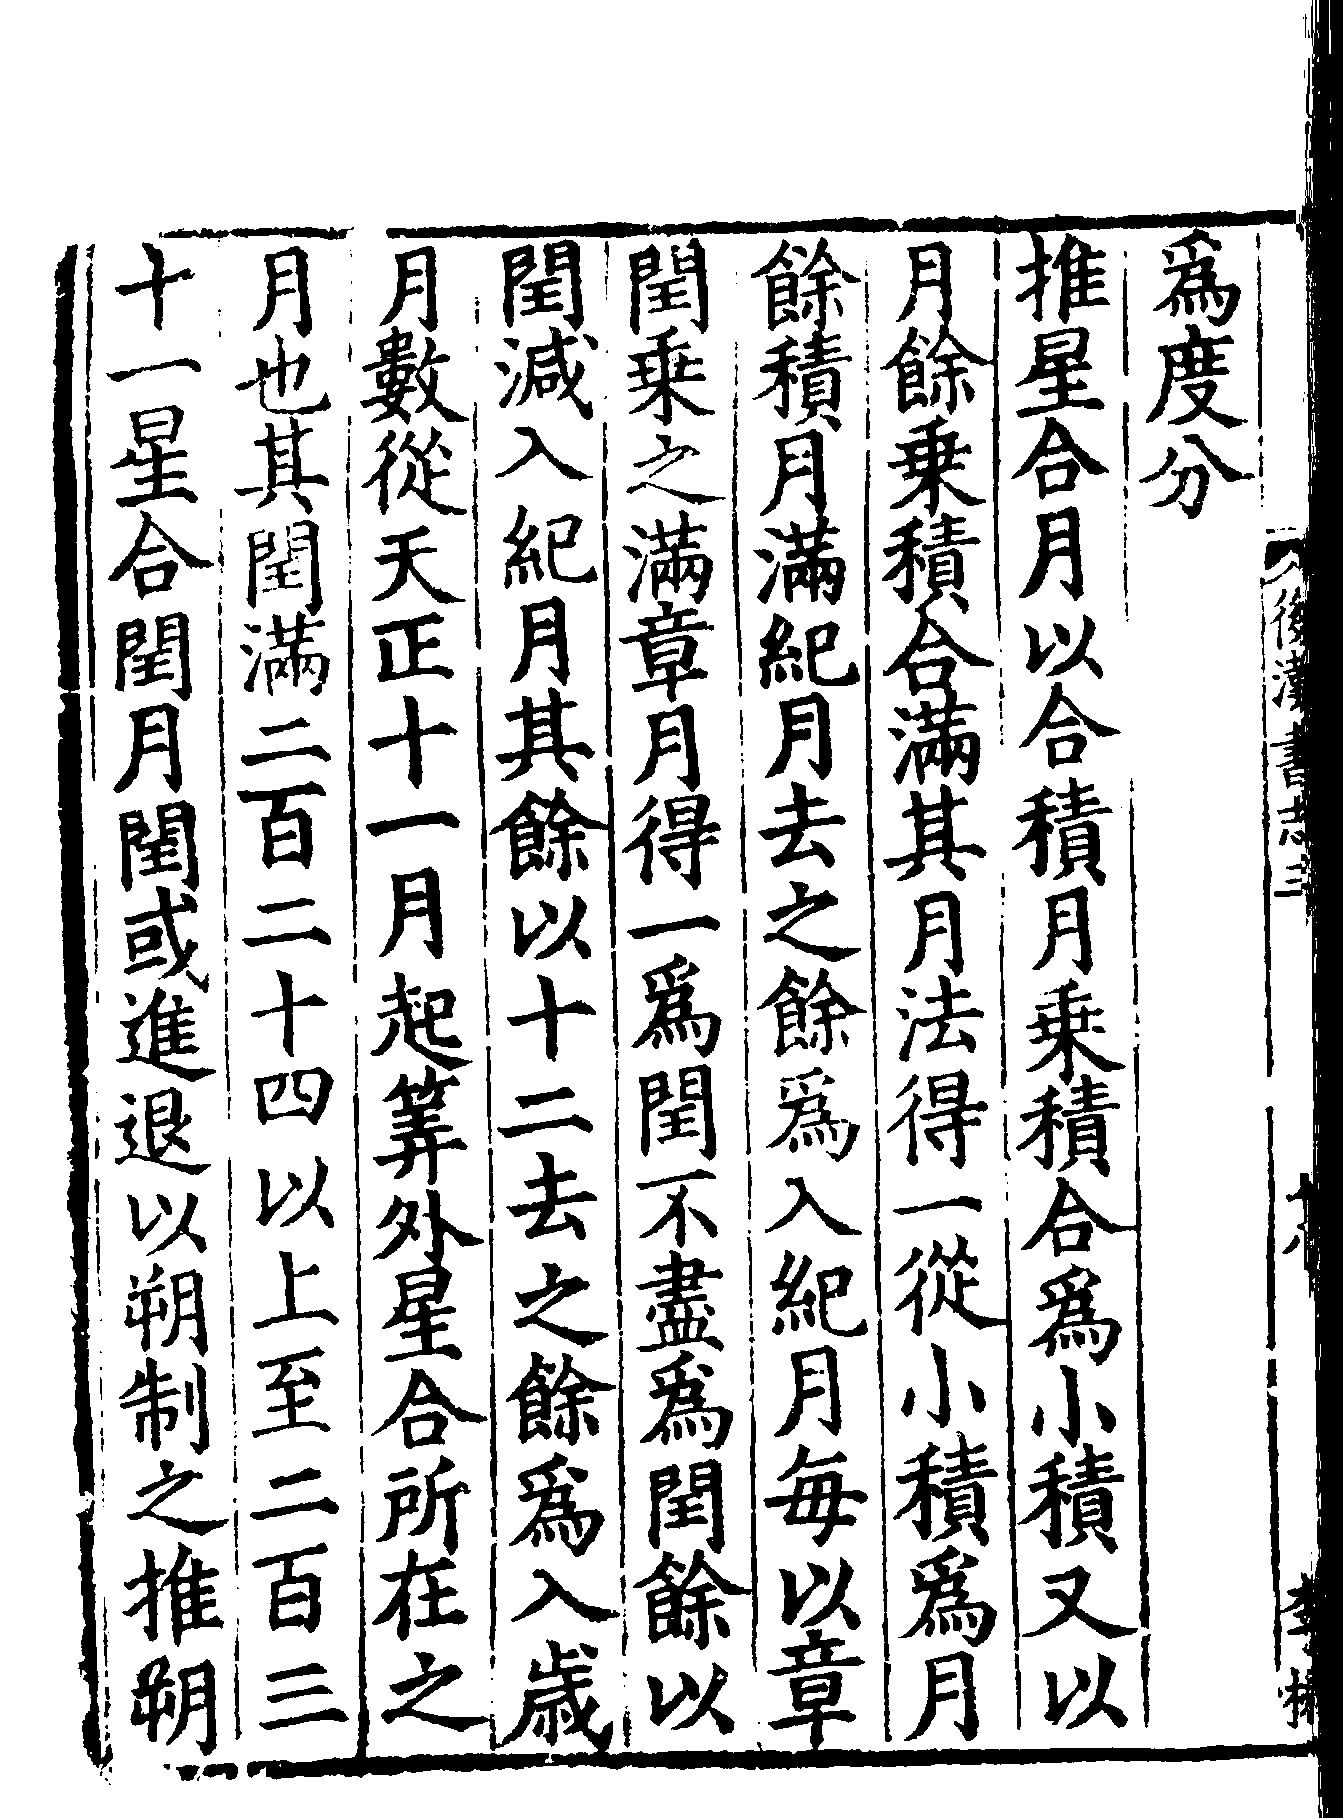 爲度分
推星合月以合積月乗積合爲小積又以
月餘乗積合滿其月法得一從小積爲月
餘積月滿紀月去之餘爲入紀月每以章
閏乗之滿章月得一爲閏不盡爲閏餘以
閏減入紀月其餘以十二去之餘爲入歳
月數從天正十一月起筭外星合所在之
月也其閏滿二百二十四以上至二百三
十一星合閏月閏或進退以朔制之推朔
後漢書志三
十八